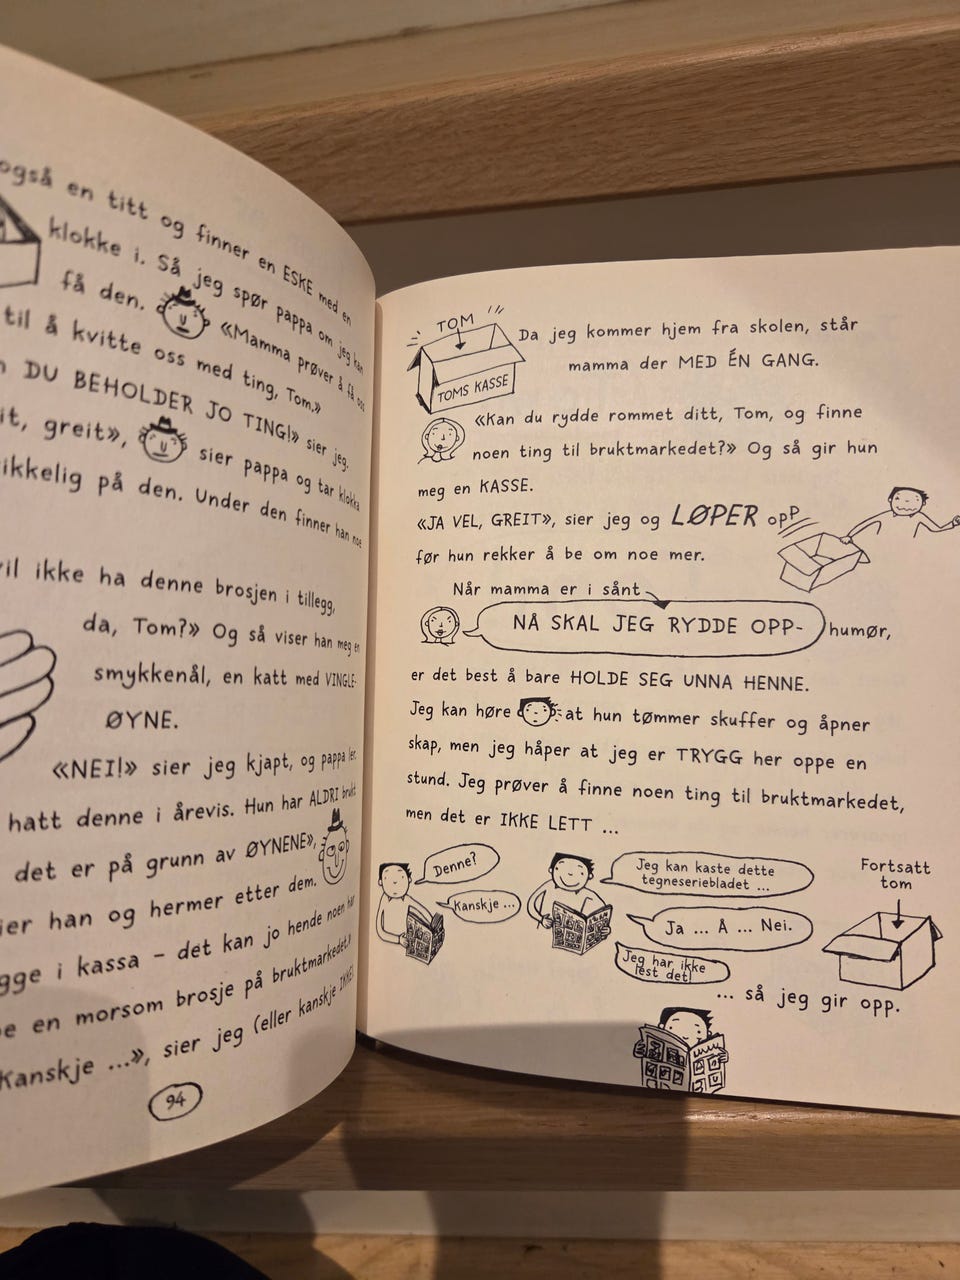 også en titt og finner en ESKE med en
klokke i. Så jeg spør pappa om jeg kan
få den.
«Mamma prøver å få oss
til å kvitte oss med ting, Tom.»
DU BEHOLDER JO TING!» sier jeg.
greit»,
sier pappa og tar klokka
på den. Under den finner han noe
ikke ha denne brosjen i tillegg,
da, Tom?» Og så viser han meg en
smykkenål, en katt med VINGLE-
ØYNE.
«NEI!» sier jeg kjapt, og pappa ler.
hatt denne i årevis. Hun har ALDRI brukt
det er på grunn av ØYNENE»,
han og hermer etter dem.
i kassa – det kan jo hende noen har
en morsom brosje på bruktmarkedet!
Kanskje ...», sier jeg (eller kanskje IKKE!
94
TOM
TOMS KASSE
Da jeg kommer hjem fra skolen, står
mamma der MED ÉN GANG.
«Kan du rydde rommet ditt, Tom, og finne
noen ting til bruktmarkedet?» Og så gir hun
meg en KASSE.
«JA VEL, GREIT», sier jeg og LØPER opp
før hun rekker å be om noe mer.
Når mamma er i sånt
NÅ SKAL JEG RYDDE OPP-
humør,
er det best å bare HOLDE SEG UNNA HENNE.
Jeg kan høre at hun tømmer skuffer og åpner
skap, men jeg håper at jeg er TRYGG her oppe en
stund. Jeg prøver å finne noen ting til bruktmarkedet,
men det er IKKE LETT ...
Denne?
Kanskje ...
Jeg kan kaste dette
tegneseriebladet ...
Ja ... Å ... Nei.
Jeg har ikke
lest det!
Fortsatt
tom
... så jeg gir opp.